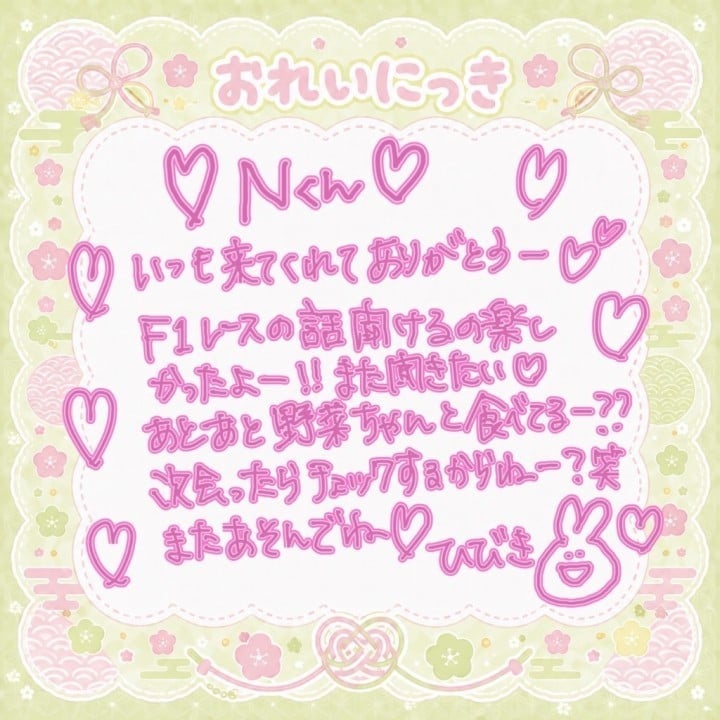 おれいにっき
♡Nくん♡ ♡
いつも来てくれてありがとうー♡♡
F1レースの話聞けるの楽し
かったよー!!また聞きたい♡
あとあと野菜ちゃんと食べてるー??
次会ったらチェックするからねー?笑
またあそんでねー♡ひびき